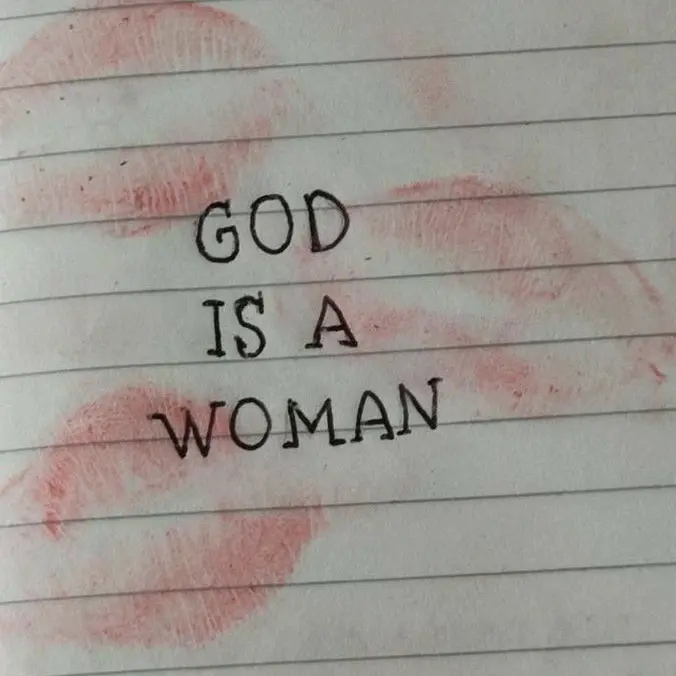 GOD
IS A
WOMAN